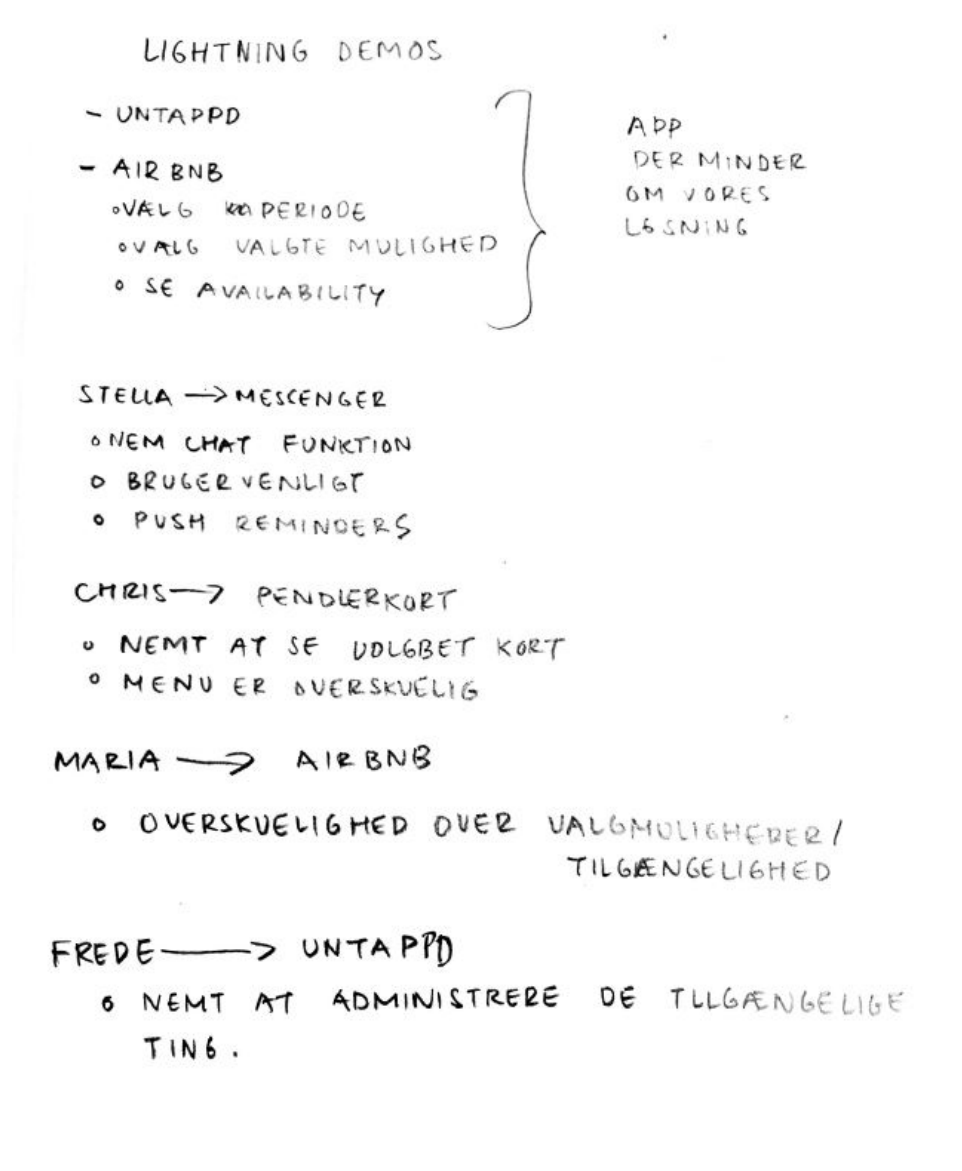 LIGHTNING DEMOS
- UNTAPPD
- AIRBNB
o VÆLG PERIODE
o VALG VALGTE MULIGHED
o SE AVAILABILITY
APP
DER MINDER
OM VORES
LØSNING
STELLA → MESCENGER
o NEM CHAT FUNKTION
o BRUGERVENLIGT
o PUSH REMINDERS
CHRIS → PENDLERKORT
o NEMT AT SE UDLØBET KORT
o MENU ER OVERSKUELIG
MARIA → AIRBNB
o OVERSKUELIGHED OVER VALGMULIGHEDER/
TILGÆNGELIGHED
FREDE → UNTAPPD
o NEMT AT ADMINISTRERE DE TILGÆNGELIGE
TING.